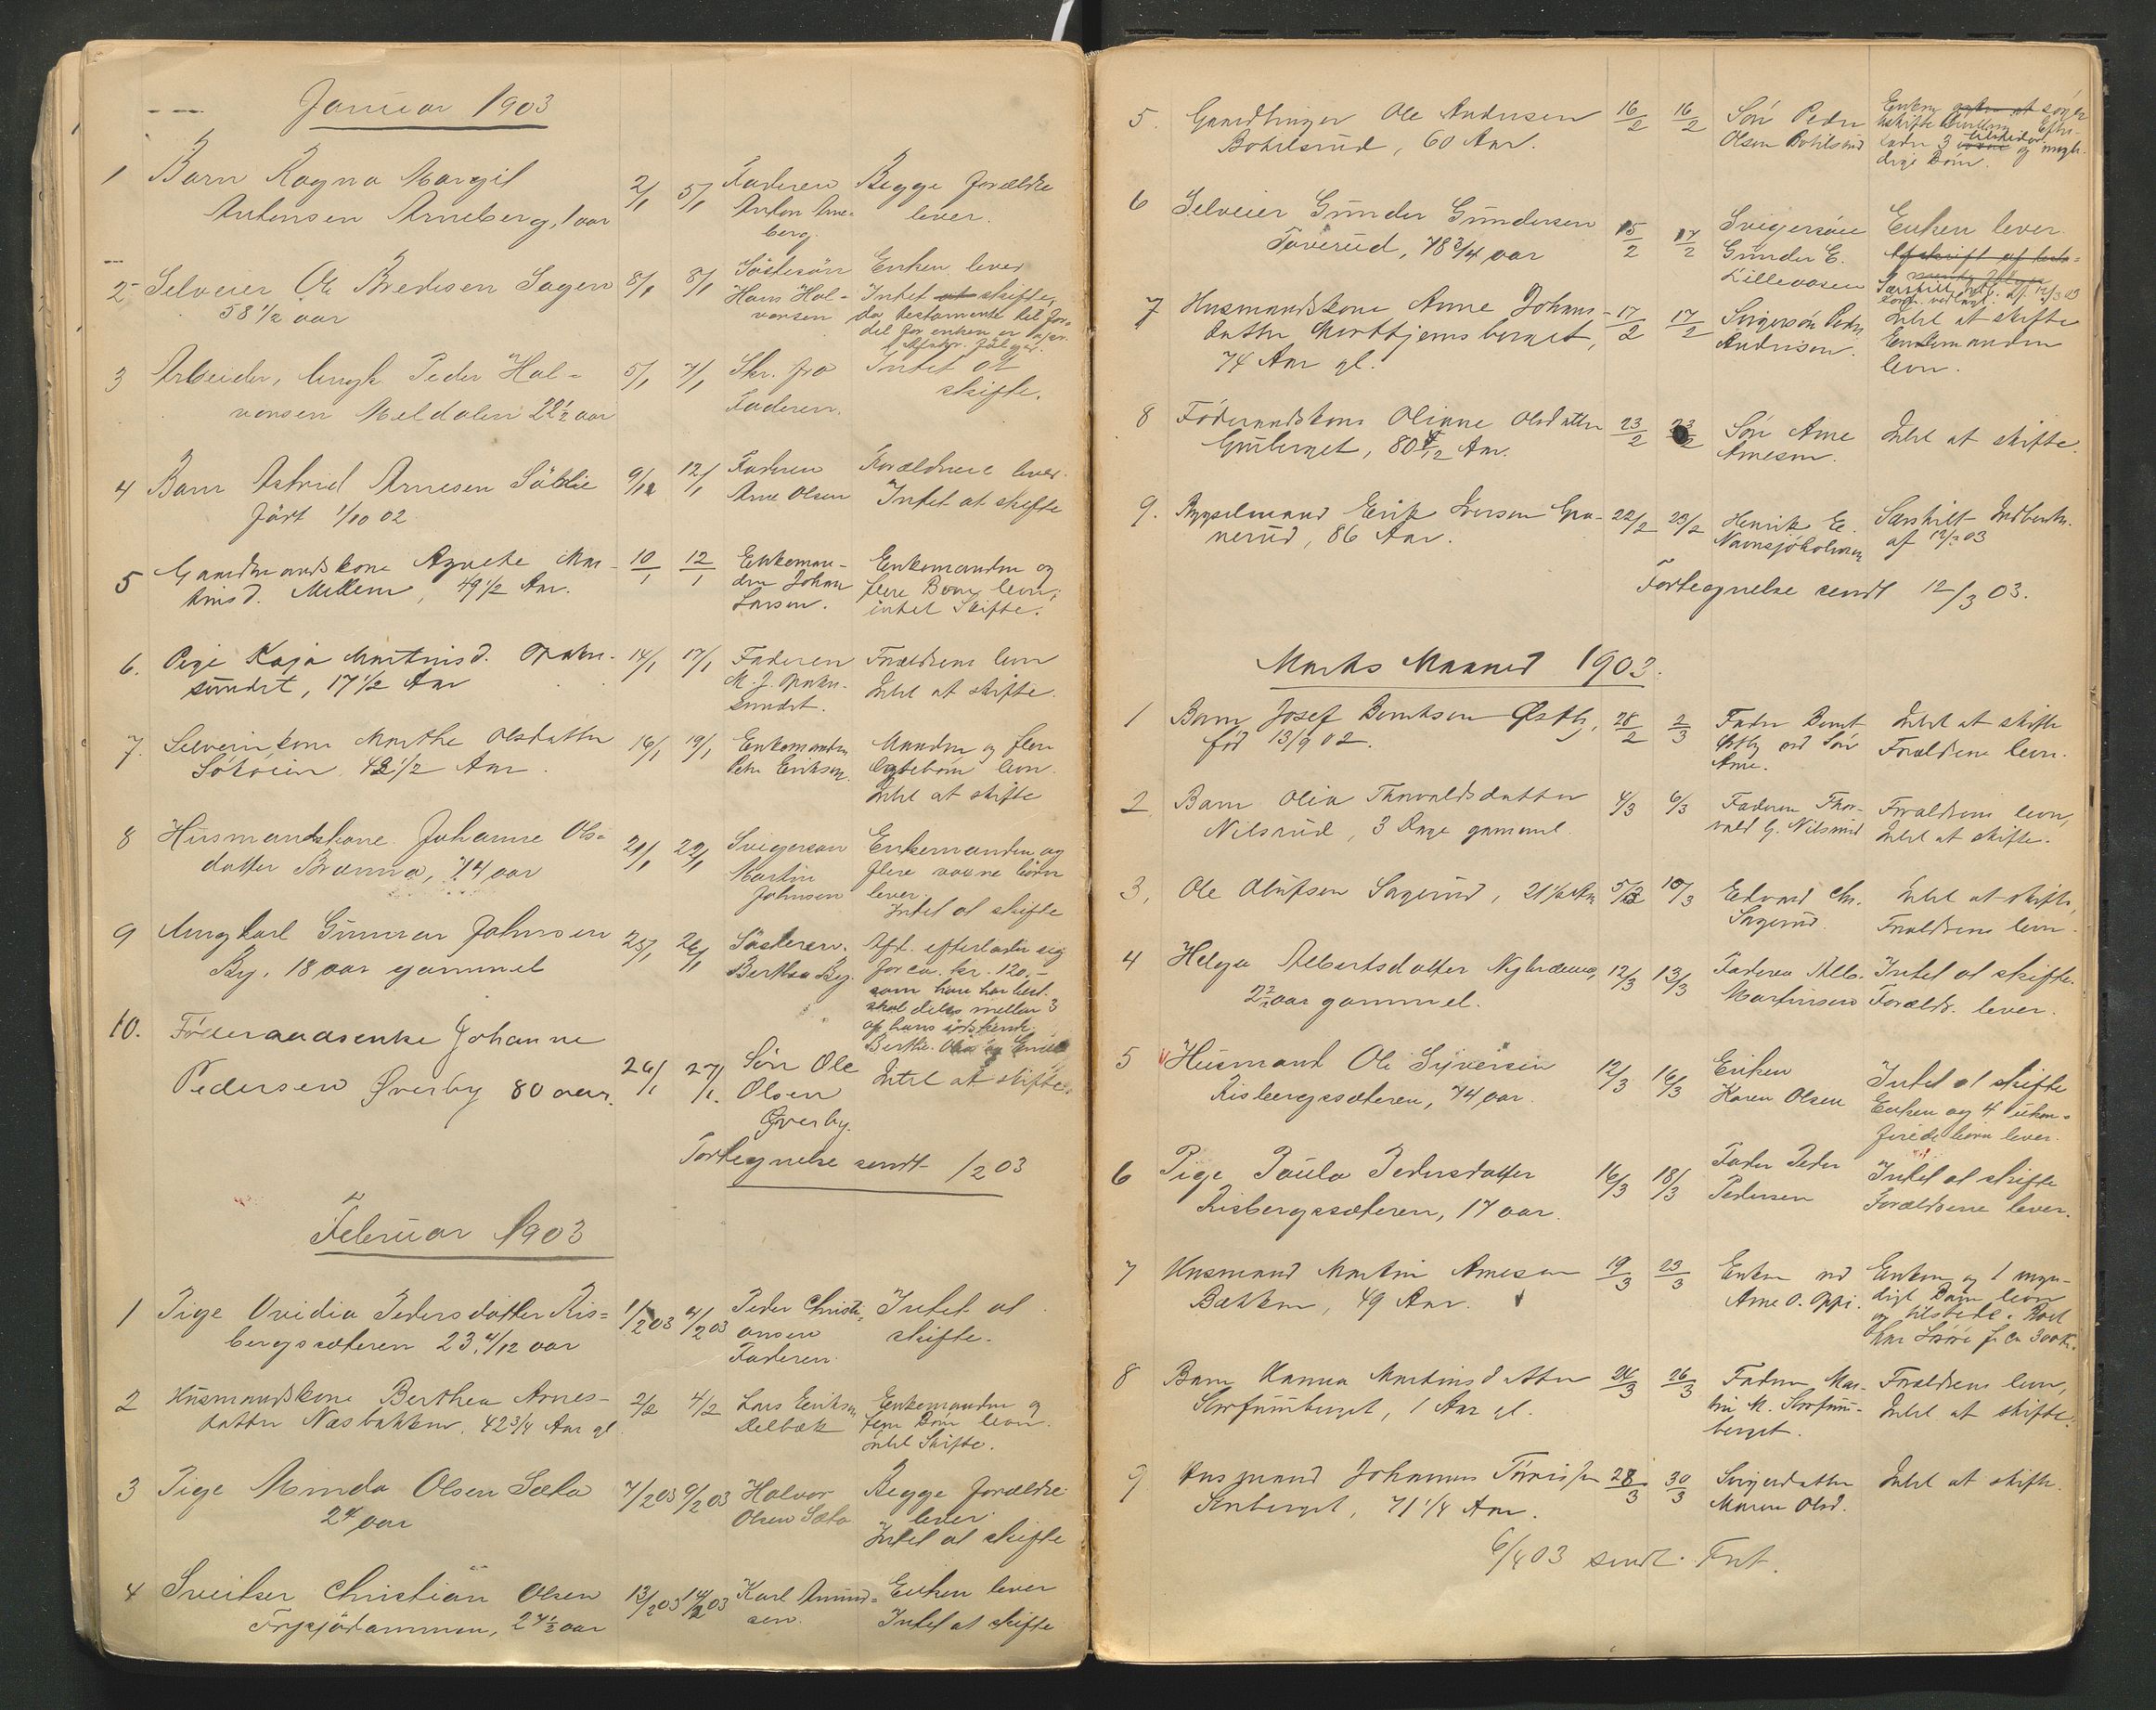 Januar 1903
1 Barn Ragna Margit 2/1 5/1 Faderen Begge forældre
Antonsen Arneberg, 1 aar Anton Arne- lever.
berg.
2 Selveier Ole Bredesen Sagen 8/1 8/1 Søstersøn Enken lever
58 1/2 aar Hans Hal- Intet at skifte,
vorsen da testamente til for-
del for enken er
3 Arbeider, Ungk. Peder Hal- 5/1 7/1 Skr. fra Intet at
vorsen Meldalen 22 1/2 aar Faderen. skifte.
4 Barn Astrid Arnesen Sætlie 9/1 12/1 Faderen Forældrene lever.
født 1/10 02 Arne Olsen Intet at skifte
5 Gaardmandskone Agnethe 10/1 12/1 Enkeman- Enkemanden og
Mellem, 49 1/2 Aar. den Johan flere Børn lever,
Larsen. intet Skifte.
6. Pige Kaja Martinsd. 14/1 17/1 Faderen Forældrene lever
sundet, 17 1/2 Aar M. J. Intet at skifte.
sundet.
7. Selveierkone Marthe Olsdatter 16/1 19/1 Enkemanden Manden og flere
42 1/2 Aar. Peter Eriksen. Ægtebørn lever.
Intet at skifte
8 Husmandskone Johanne Ols- 21/1 22/1 Svigersøn Enkemanden og
datter Brænna, 74 aar Martin flere voxne børn
Johnsen lever.
Intet at skifte
9 Ungkarl Gunnar Johnsen 25/1 26/1 Søsteren Afd. efterlader sig
By, 18 aar gammel Berthea By. for ca. kr. 120.-
som han har best.
skal deles mellem 3
af hans søskende.
Berthe.
10. Føderaadsenke Johanne
Pedersen Øverby 80 aar. 26/1 27/1. Søn Ole Intet at skifte.
Olsen
Øverby.
Fortegnelse sendt /2 03
Februar 1903
1 Pige Ovidia Pedersdatter Ris- 1/2 03 4/2 03 Peder Christi- Intet at
bergssæteren 23 4/12 aar ansen skifte.
Faderen.
2 Husmandskone Berthea Arnes- 2/2 4/2 Lars Eriksen Enkemanden og
datter Næsbakken, 42 3/4 Aar gl. Delbæk fem Børn lever.
Intet Skifte.
3 Pige Minda Olsen Sæta 7/2 03 9/2 03 Halvor Begge forældre
24 aar Olsen Sæta lever.
Intet at skifte
4 Sveitser Christian Olsen 13/2 03 14/2 03 Karl Amund- Enken lever
Frysjødammen, 27 1/2 aar sen. Intet at skifte
5. Gaardbruger Ole Andersen 16/2 16/2 Søn Peder Enken søger
Bohilsrud, 60 Aar. Olsen Bohilsrud
dige Børn.
6 Selveier Gunder Gundersen 15/2 17/2 Svigersøn Enken lever.
Taverud, 78 3/4 aar Gunder E. Afskrift af
Lillevasen
7 Husmandskone Anne Johans- 17/2 17/2 Svigersøn Peder Intet at skifte
datter Mortkjernsberget, Andersen. Enkemanden
74 Aar gl. lever.
8 Føderaadskone Oliane Olsdatter 23/2 23/2 Søn Arne Intet at skifte.
Gruberget, 80 4/12 Aar. Arnesen.
9. Erik Iversen Gra- 22/2 23/2 Henrik E. Særskilt Indberetn.
nerud, 86 Aar. Navnsjøholmen af 12/3 03
Fortegnelse sendt 12/3 03.
Marts Maaned 1903.
1 Barn Josef Berntsen Østby, 28/2 2/3 Fader Bernt Intet at skifte
fød 13/9 02. Østby ved Søn Forældrene lever.
Arne.
2 Barn Olia Thorvaldsdatter 4/3 6/3 Faderen Thor- Forældrene lever,
Nilsrud, 3 Dage gammel. vald G. Nilsrud Intet at skifte.
3, Ole Olufsen Sagerud, 21 1/2 Aar 5/3 10/3 Edvard Chr. Intet at skifte,
Sagerud. Forældrene lever.
4 Helga Albertsdatter 12/3 13/3 Faderen Alb. Intet at skifte.
aar gammel. Martinsen Forældr. lever.
5 Husmand Ole Syversen 12/3 16/3 Enken Intet at skifte
Risbergssæteren, 74 aar. Karen Olsen Enken og 4 ukon-
firede børn lever.
6 Pige Paula Pedersdatter 16/3 18/3 Fader Peder Intet at skifte
Risbergssæteren, 17 aar. Pedersen Forældrene lever.
7 Husmand Martin Arnesen 19/3 23/3 Enken ved Enken og 1 myn-
Bakken, 49 Aar. Arne O. Oppi. digt Barn lever
og tilstede. Boet
har Løsøre for ca 300 Kr.
8 Barn Hanna Martinsdatter 24/3 26/3 Faderen Mar- Forældrene lever,
Storfuruberget, 1 Aar gl. tin M. Storfuru- Intet at skifte.
berget.
9 Husmand Johannes 28/3 30/3 Svigerdatter Intet at skifte.
71 1/4 Aar. Maren Olsd.
6/4 03 sendt. Fort.